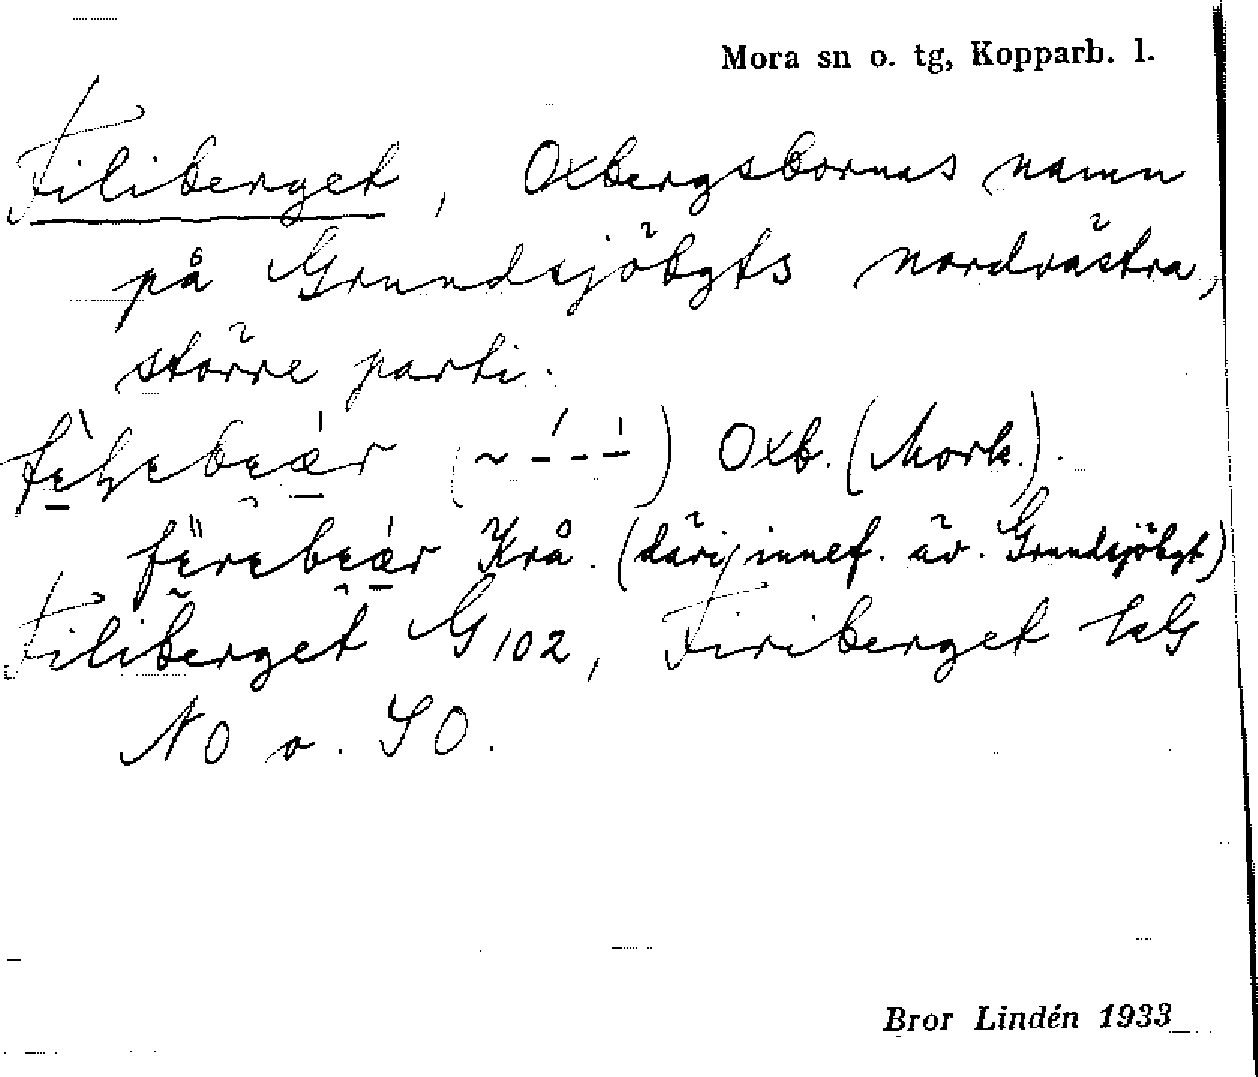 Mora sn o. tg, Kopparb. l.
Filiberget, Oxbergsbornas namn
på Grundsjöbgts nordvästra,
större parti.
Oxb. (Mork.).
Krå. (däri innef. äv. Grundsjöbgt)
Filiberget G 102, Firiberget
NO o. SO.
Bror Lindén 1933